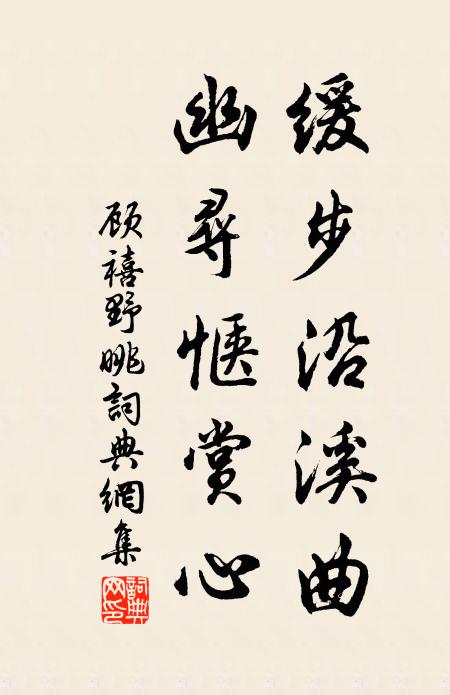 缓步沿溪曲
幽寻惬赏心
顾禧野眺詞典網集
詞典网印